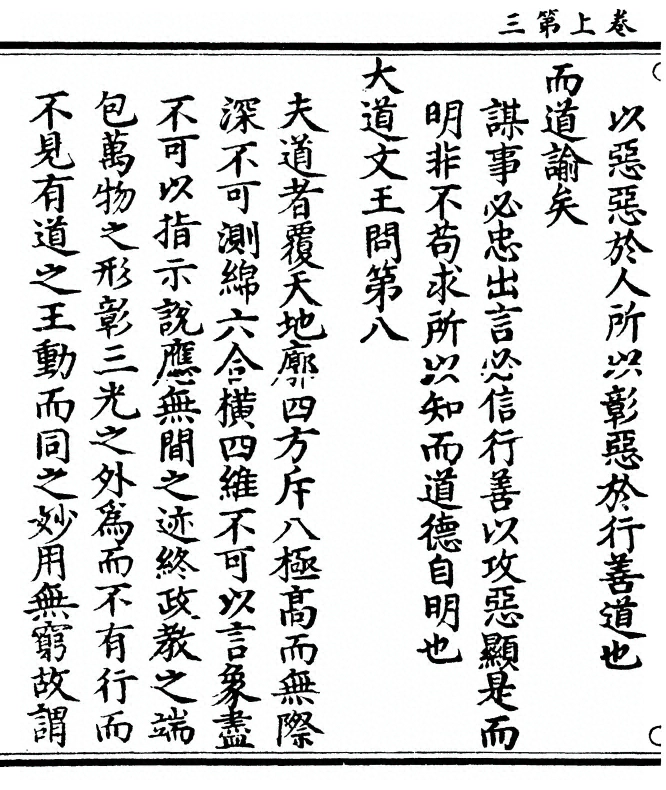 卷上第三
以惡惡於人所以彰惡於行善道也
而道諭矣
謀事必忠出言必信行善以攻惡顯是而
明非不苟求所以知而道德自明也
大道文王問第八
夫道者覆天地廓四方斥八極高而無際
深不可測綿六合橫四維不可以言象盡
不可以指示說應無間之迹終政教之端
包萬物之形彰三光之外爲而不有行而
不見有道之王動而同之妙用無窮故謂